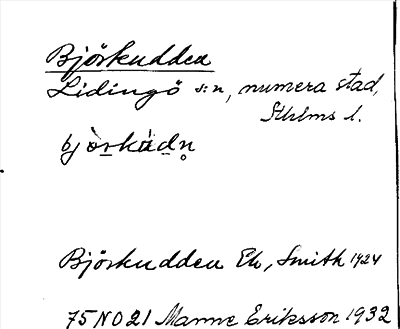 Björkudden
Lidingö s:n, numera stad,
Sthlms l.
bjö̀rkúdn̥
Björkudden Ek, Smith 1924
75 NO 21 Manne Eriksson 1932